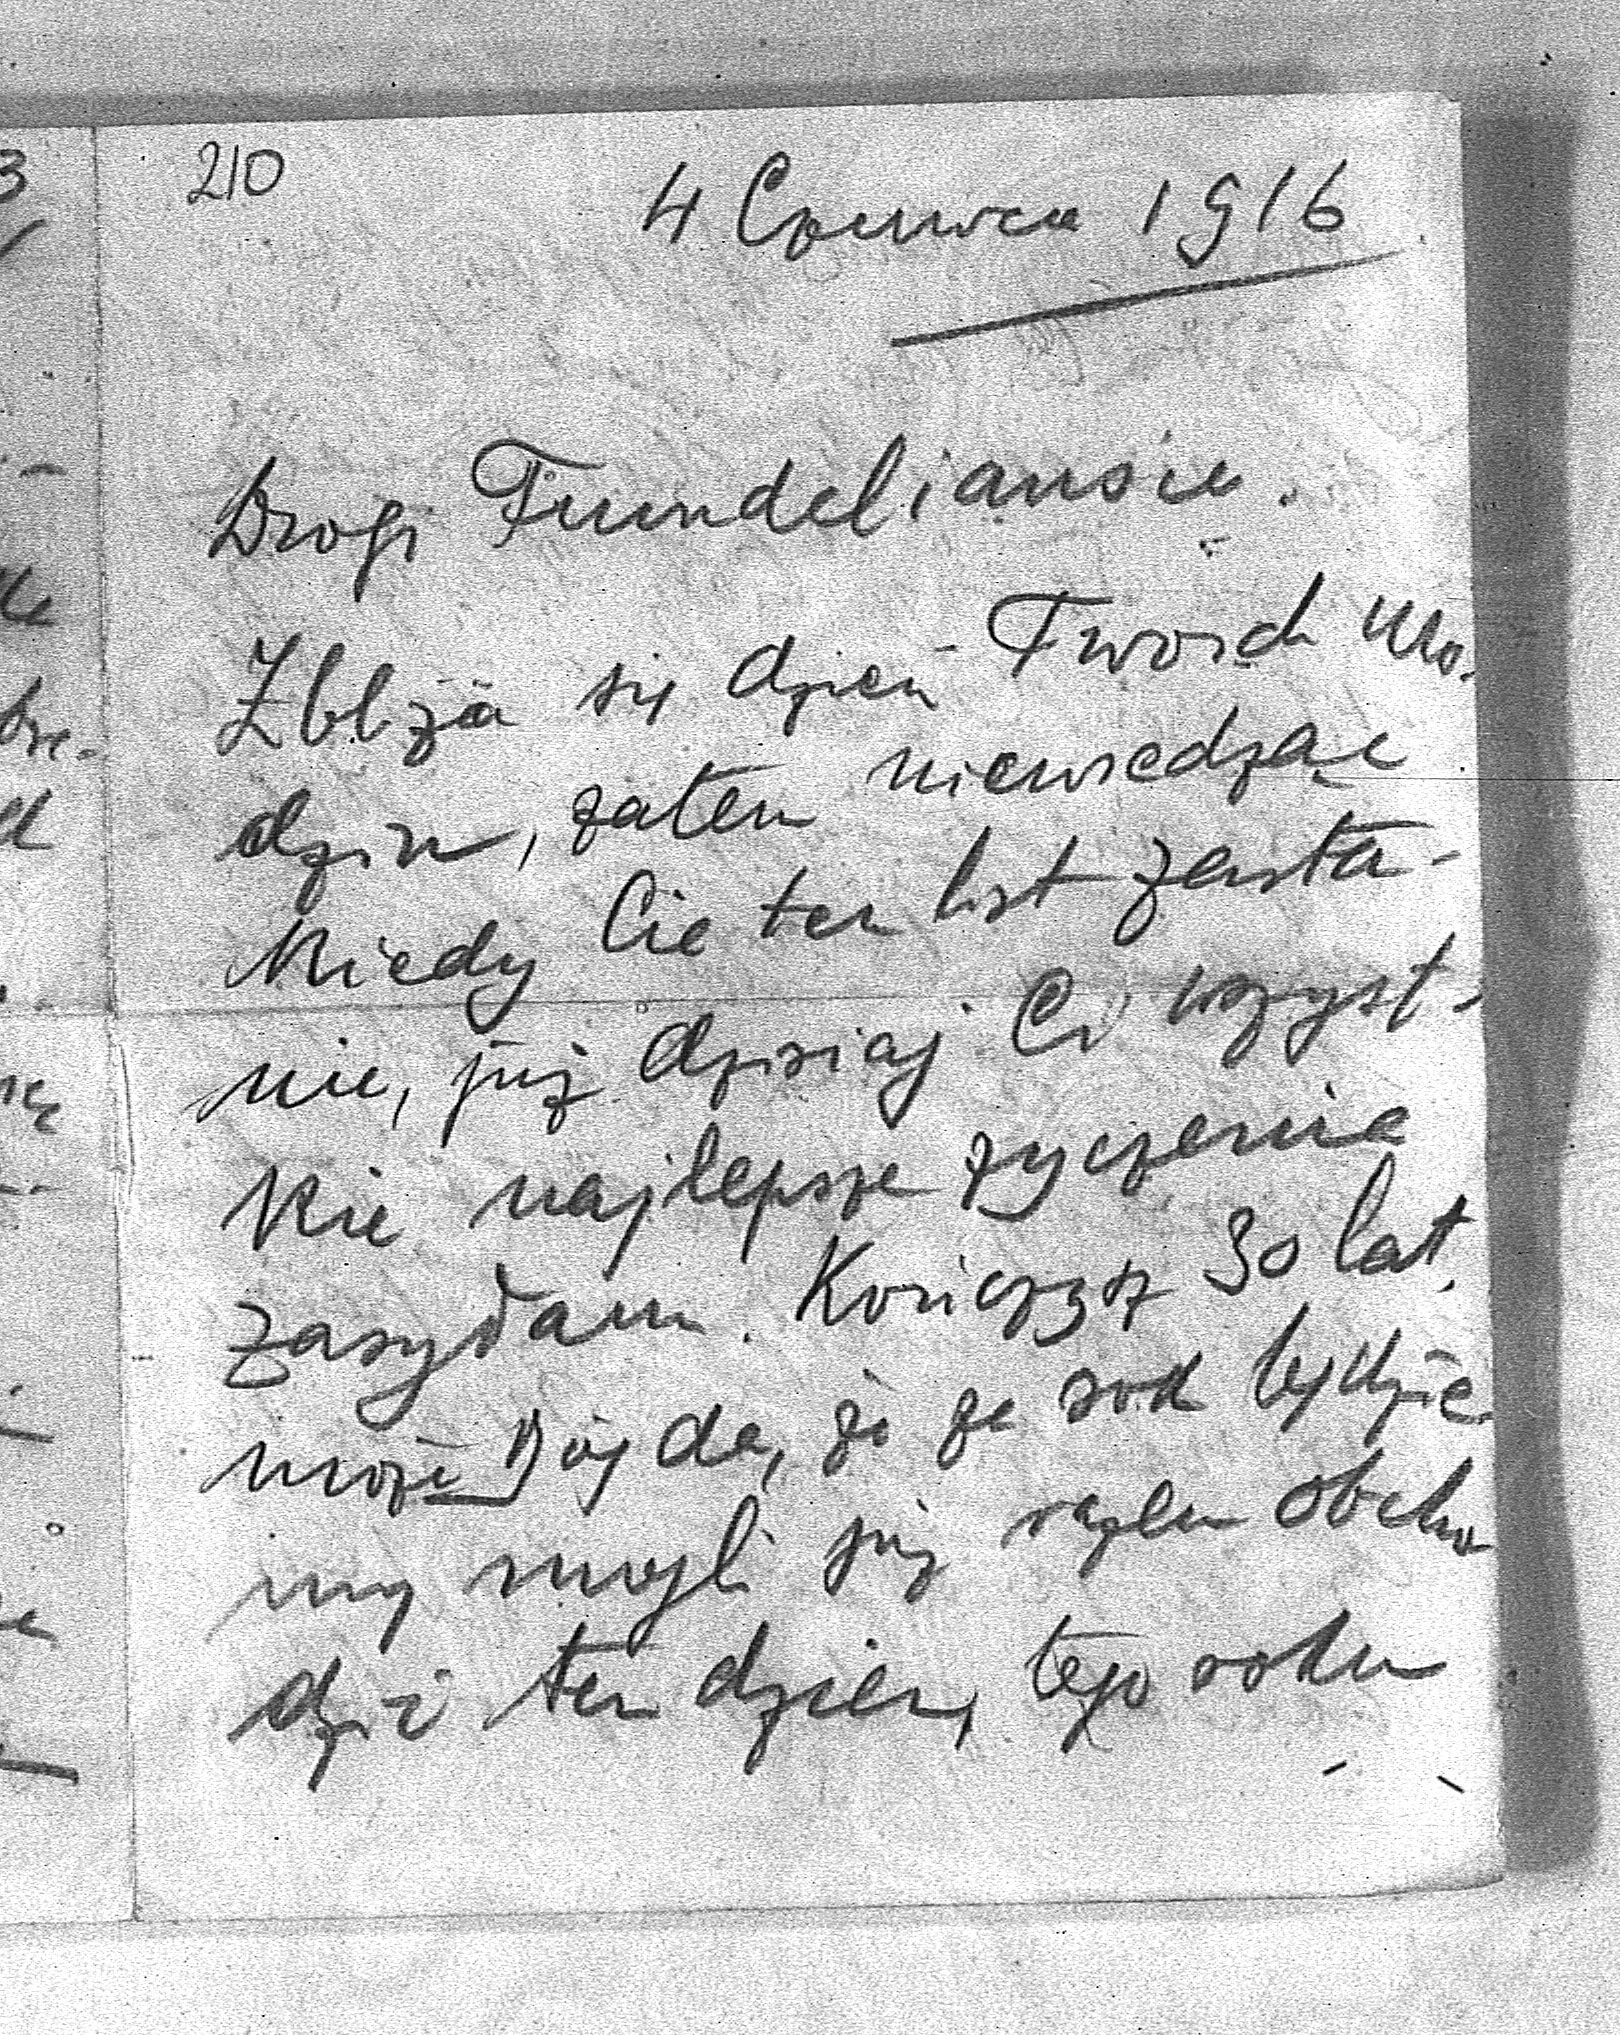 210
4 Czerwca 1916
Drogi Fundeliansie.
Zbliża się dzień Twoich Uro-
dzin, zatem niewiedząc
kiedy Cię ten list zasta-
nie, już dzisiaj Ci wszyst-
kie najlepsze życzenia
zasyłam. Kończysz 30 lat,
może Bóg da, że za rok będzie-
my mogli już razem obcho
dzić ten dzień, tego roku